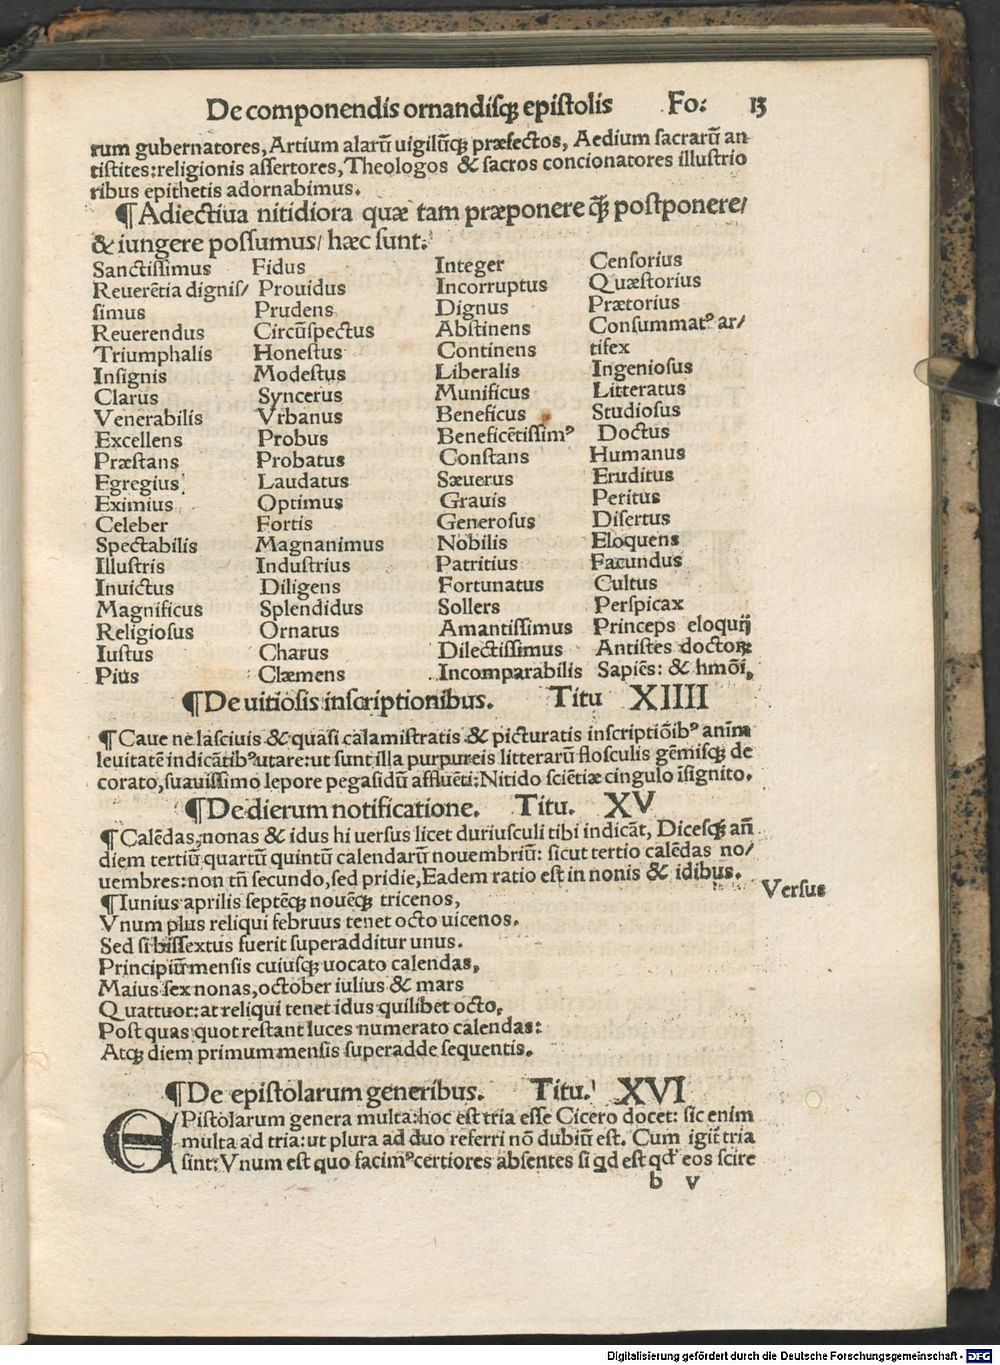 De componendis ornandisq; epistolis Fo: 13
rum gubernatores, Artium alarū uigilūq; præfectos, Aedium sacrarū an
tistites: religionis assertores, Theologos & sacros concionatores illustrio
ribus epithetis adornabimus.
¶ Adiectiua nitidiora quæ tam præponere q̃ꝫ postponere/
& iungere possumus/ hæc sunt:
Sanctissimus
Reuerētia dignis/
simus
Reuerendus
Triumphalis
Insignis
Clarus
Venerabilis
Excellens
Præstans
Egregius
Eximius
Celeber
Spectabilis
Illustris
Inuictus
Magnificus
Religiosus
Iustus
Pius
Fidus
Prouidus
Prudens
Circūspectus
Honestus
Modestus
Syncerus
Vrbanus
Probus
Probatus
Laudatus
Optimus
Fortis
Magnanimus
Industrius
Diligens
Splendidus
Ornatus
Charus
Clæmens
Integer
Incorruptus
Dignus
Abstinens
Continens
Liberalis
Munificus
Beneficus
Beneficētissimꝰ
Constans
Sæuerus
Grauis
Generosus
Nobilis
Patritius
Fortunatus
Sollers
Amantissimus
Dilectissimus
Incomparabilis
Censorius
Quæstorius
Prætorius
Consummatꝰ ar/
tifex
Ingeniosus
Litteratus
Studiosus
Doctus
Humanus
Eruditus
Peritus
Disertus
Eloquens
Facundus
Cultus
Perspicax
Princeps eloquij
Antistes doctoꝝ:
Sapiēs: & hmōi,
¶ De uitiosis inscriptionibus. Titu XIIII
¶ Caue ne lasciuis & quasi calamistratis & picturatis inscriptiōibꝰ anīm
leuitatē indicātibꝰ utare: ut sunt illa purpureis litterarū flosculis gēmisq; de
corato, suauissimo lepore pegasidū affluēti: Nitido sciētiæ cingulo īsignito.
¶ De dierum notificatione. Titu. XV
¶ Calēdas, nonas & idus hi uersus licet duriusculi tibi indicāt, Dicesq; añ
diem tertiū quartū quintū calendarū nouembriū: sicut tertio calēdas no/
uembres: non tñ secundo, sed pridie, Eadem ratio est in nonis & idibus.
Versus
¶ Iunius aprilis septēq; nouēq; tricenos,
Vnum plus reliqui februus tenet octo uicenos.
Sed si bissextus fuerit superadditur unus.
Principiū mensis cuiusq; uocato calendas,
Maius sex nonas, october iulius & mars
Quattuor: at reliqui tenet idus quilibet octo,
Post quas quot restant luces numerato calendas:
Atq; diem primum mensis superadde sequentis.
¶ De epistolarum generibus. Titu. XVI
EPistolarum genera multa: hoc est tria esse Cicero docet: sic enim
multa ad tria: ut plura ad duo referri nō dubiū est. Cum igit̄ tria
sint: Vnum est quo facimꝰ certiores absentes si qd est qđ eos scire
b v
Digitalisierung gefördert durch die Deutsche Forschungsgemeinschaft - DFG